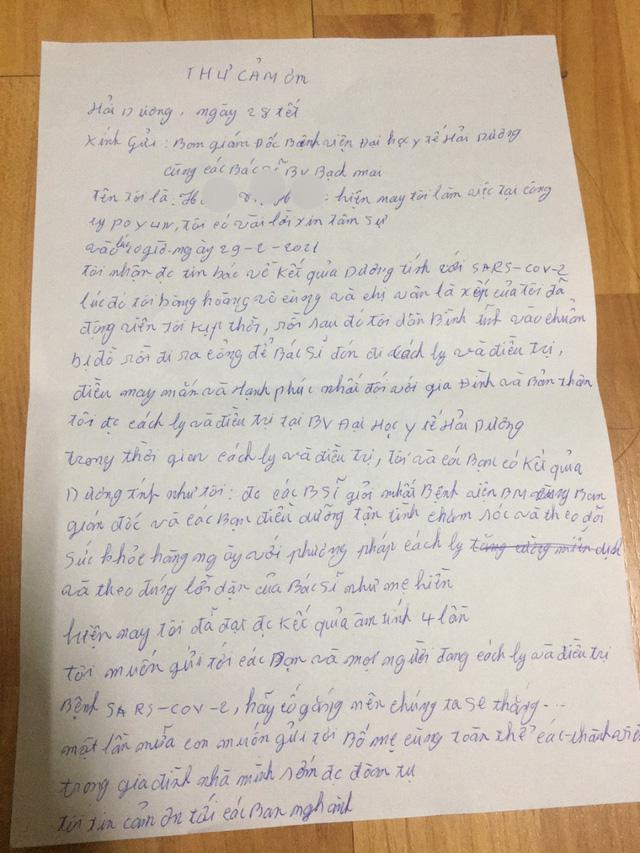 THƯ CẢM ƠN
Hải Dương, ngày 28 tết
Kính gửi: Ban giám Đốc Bệnh viện Đại học y tế Hải Dương
cùng các Bác sĩ BV Bạch mai
Tên tôi là: H hiện nay tôi làm việc tại công
ty POYUN, tôi có vài lời xin tâm sự
vào lúc 10 giờ ngày 29-2-2021
tôi nhận đc tin báo về kết quả Dương tính với SARS-COV-2
lúc đó tôi bàng hoàng vô cùng và chị vân là xếp của tôi đã
động viên tôi kịp thời, rồi sau đó tôi dần Bình tĩnh vào chuẩn
bị đồ rồi đi ra cổng để Bác Sĩ đón đi cách ly và điều trị,
điều may mắn và Hạnh phúc nhất đối với gia Đình và Bản thân
tôi đc cách ly và điều trị tại BV Đại Học y tế Hải Dương
trong thời gian cách ly và điều trị, tôi và các Bạn có kết quả
Dương tính như tôi: đc các BSĩ giỏi nhất Bệnh viện BM cùng Ban
giám đốc và các Bạn điều dưỡng tận tình chăm sóc và theo dõi
sức khỏe hàng ngày với phương pháp cách ly
và theo đúng lời dặn của Bác Sĩ như mẹ hiền
hiện nay tôi đã đạt đc kết quả âm tính 4 lần
tôi muốn gửi tới các Bạn và mọi người đang cách ly và điều trị
Bệnh SARS-COV-2, hãy cố gắng nên chúng ta sẽ thắng...
một lần nữa con muốn gửi tới Bố mẹ cùng toàn thể các thành viên
trong gia đình nhà mình sớm đc đoàn tụ
tôi xin cảm ơn tới các Ban nghành